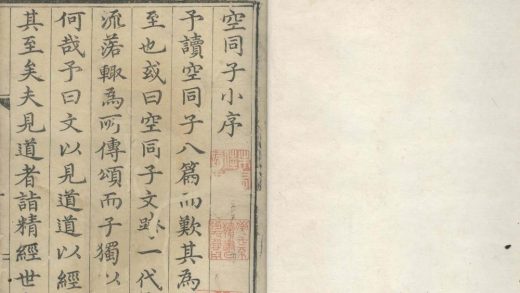 空同子小序
予讀空同子八篇而歎其為
至也或曰空同子文一代
流落輒為所傳頌而子獨以
何哉予曰文以見道道以經
其至矣夫見道者詣精經世